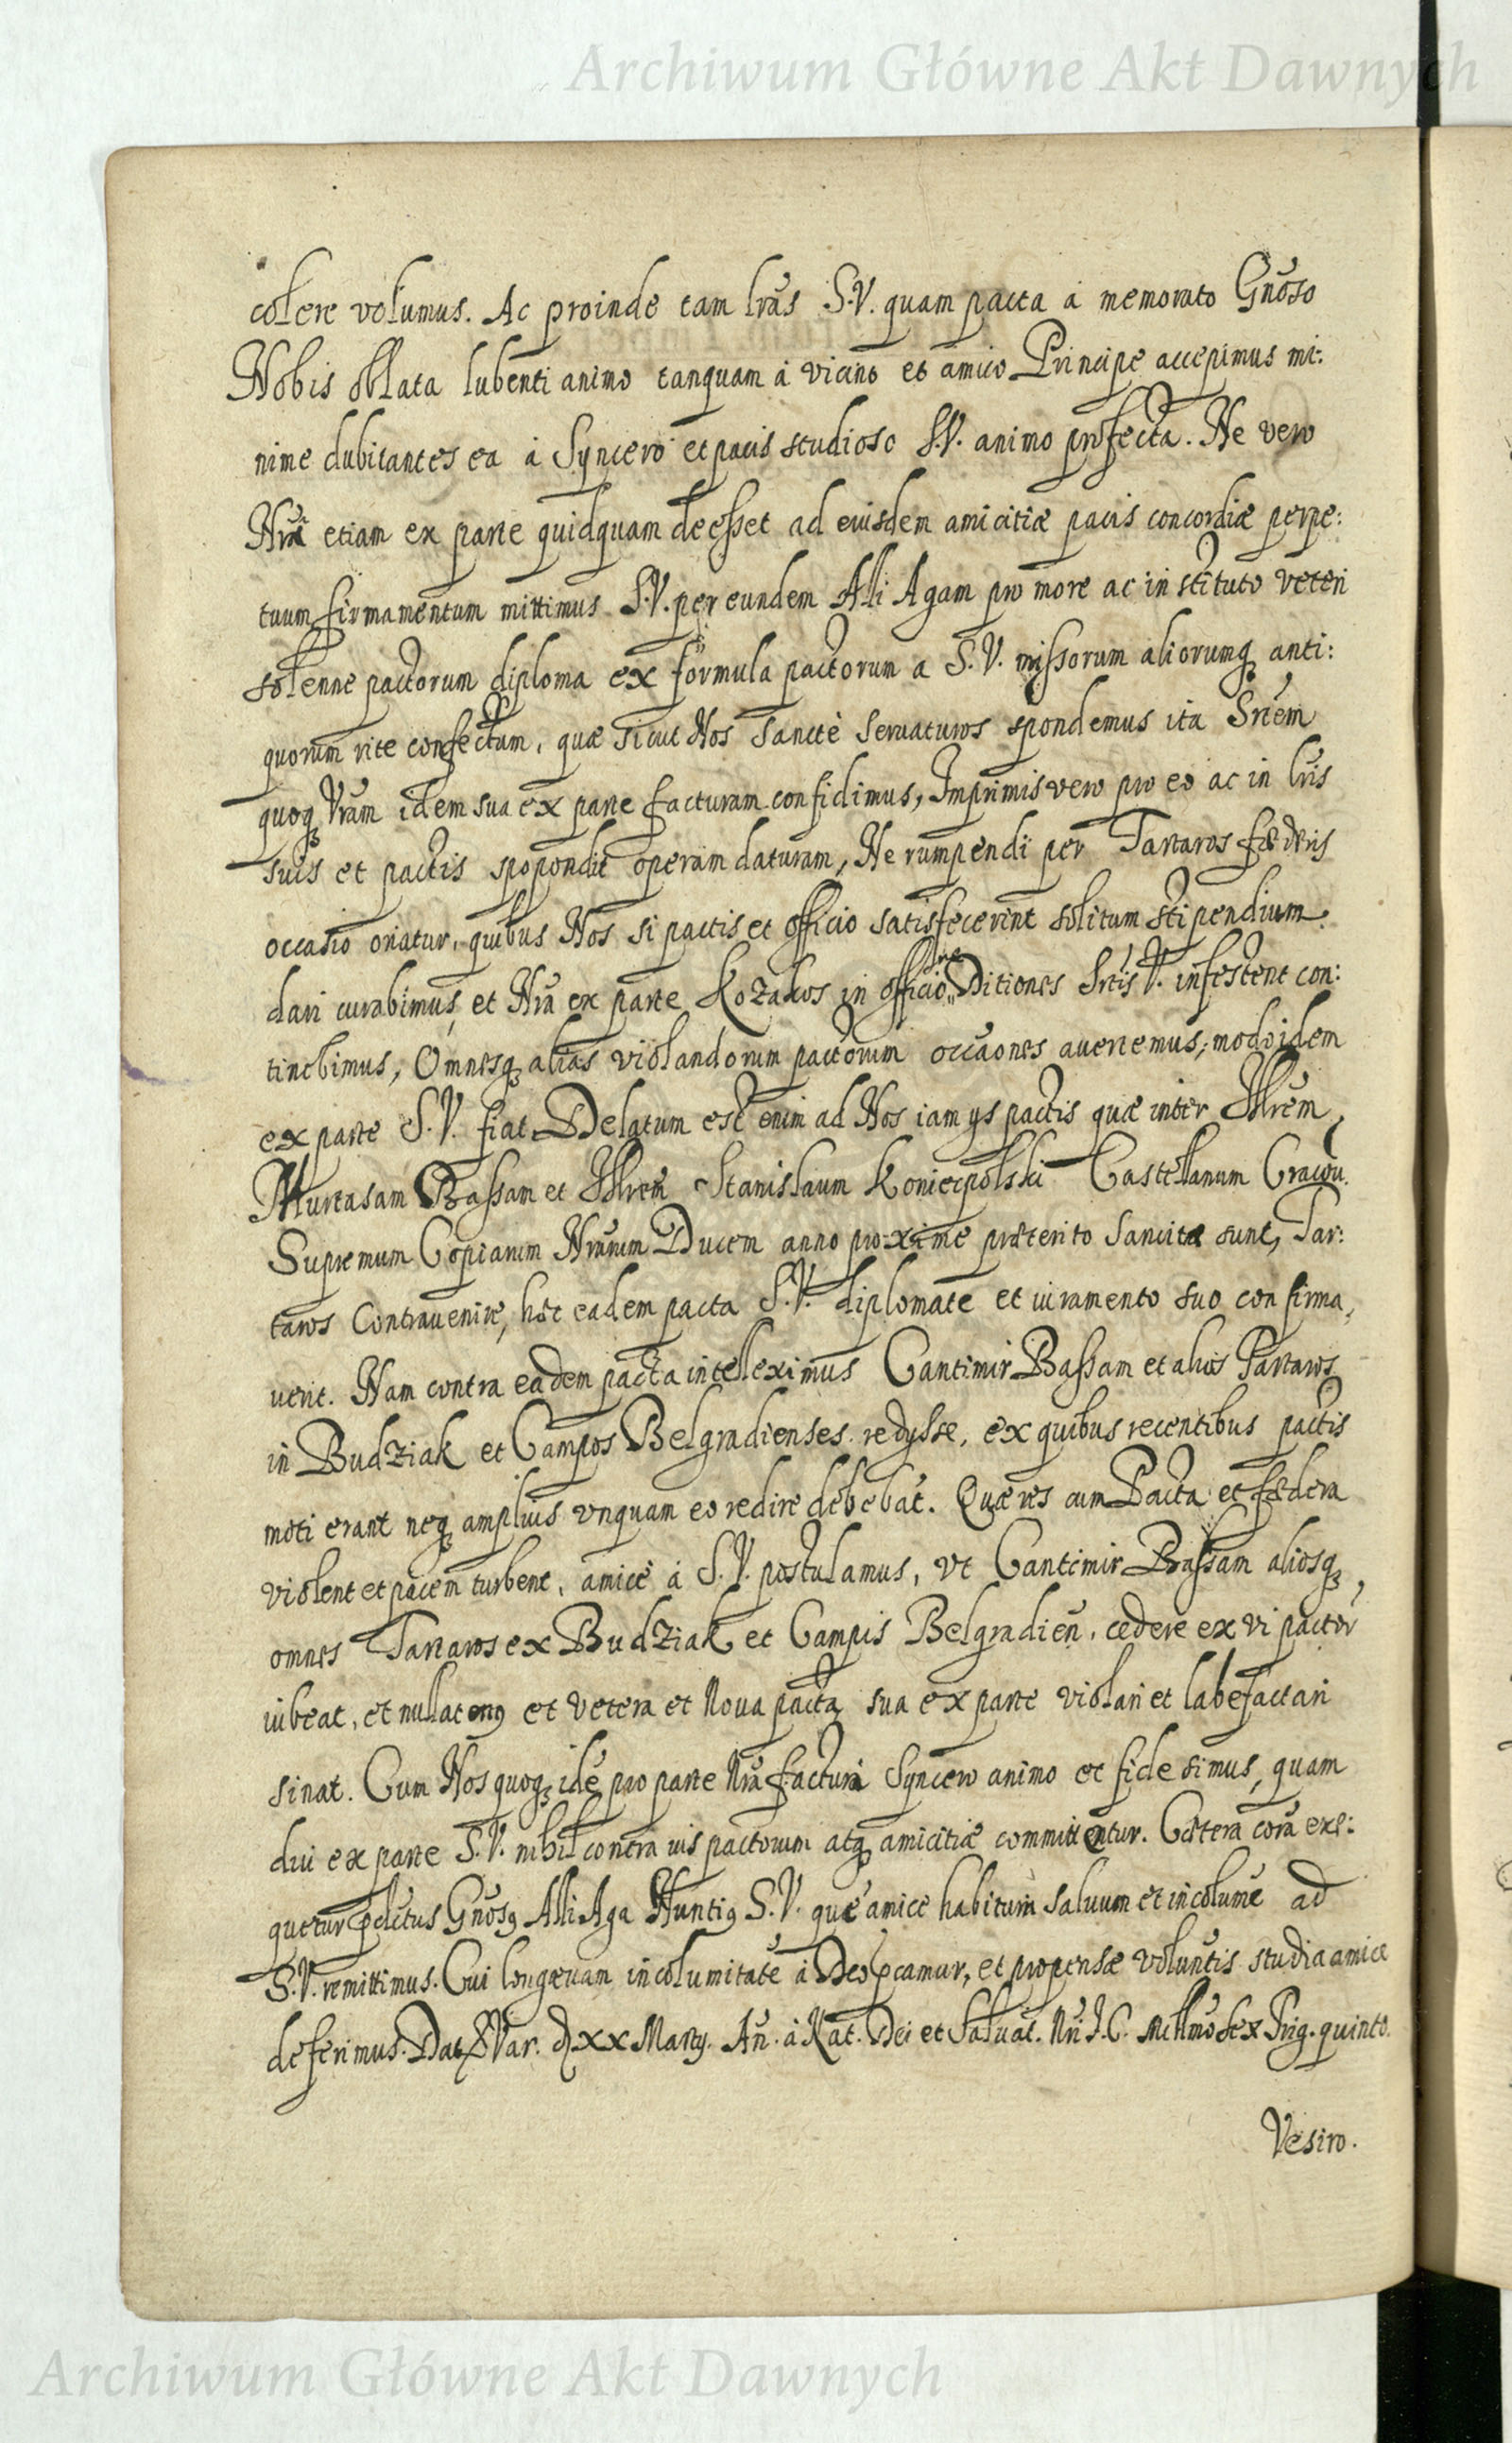 Archiwum Główne Akt Dawnych
colere volumus. Ac proinde tam lrãs S.V. quam pacta à memorato Gnõso
Nobis oblata lubenti animo tanquam à vicino et amico Principe accepimus mi:
nime dubitantes ea à Syncero et pacis studioso S.V. animo profecta. Ne vero
Nrã etiam ex parte quidquam deesset ad eiusdem amicitiæ pacis concordiæ perpe:
tuum firmamentum mittimus S.V. per eundem Alli Agam pro more ac instituto veteri
solenne pactorum diploma ex formula pactorum a S.V. missorum aliorumq₃ anti:
quorum rite confectum, quæ sicut Nos Sanctè Servaturos spondemus ita Srtẽm
quoq₃ Vrãm idem sua ex parte facturam confidimus, Imprimis vero pro eo ac in lrĩs
suis et pactis spopondit operam daturam, Ne rumpendi per Tartaros fœderis
occasio oriatur, quibus Nos si pactis et officio satisfecerint solitum stipendium
dari curabimus, et Nrã ex parte Kozakos in officio ne Ditiones Srtis V. infestent con:
tinebimus, Omnesq₃ alias violandorum pactorum occãones avertemus, modo idem
ex parte S.V. fiat. Delatum est enim ad Nos iam ys pactis quæ inter Illrẽm
Murtasam Bassam et Illrẽm Stanislaum Koniecpolski Castellanum Cracou.
Supremum Copiarum Nrãrum Ducem anno proxime præterito Sancita sunt, Tar:
taros Contravenire, licet eadem pacta S.V. diplomate et iuramento suo confirma,
verit. Nam contra eadem pacta intelleximus Cantimir Bassam et alios Tartaros
in Budziak et Campos Belgradienses redysse, ex quibus recentibus pactis
moti erant neq₃ amplius unquam eo redire debebãt. Quæ res cum Pacta et fœdera
violent et pacem turbent, amicè à S.V. postulamus, ut Cantimir Bassam aliosq₃
omnes Tartaros ex Budziak et Campis Belgradieñ. cedere ex vi pactor
iubeat, et nullatenq et vetera et Nova pacta sua ex parte violari et labefactari
sinat. Cum Nos quoq₃ idẽ pro parte Nrã facturi Syncero animo et fide simus, quam
diu ex parte S.V. nihil contra vis pactorum atq₃ amicitiæ committentur. Cætera corã exe:
quetur Gnõsq Alli Aga Nuntiq S.V. quẽ amice habitum salvum et incolumẽ ad
S.V. remittimus. Cui longævam incolumitatẽ à Deo p̃camur, et propensæ voluntis studia amice
deferimus. Dat. Var. d. XX Marty. Añ. à Nat. Dei et Salvat. Nri J.C. Millmõ Sex Trig. quinto.
Vesiro.
Archiwum Główne Akt Dawnych